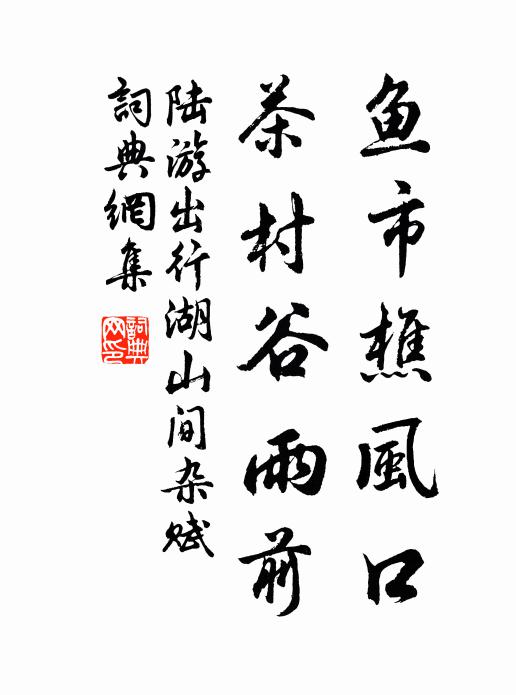 鱼市樵風口
茶村谷雨前
陆游出行湖山间杂赋
詞典網集
詞典
网印